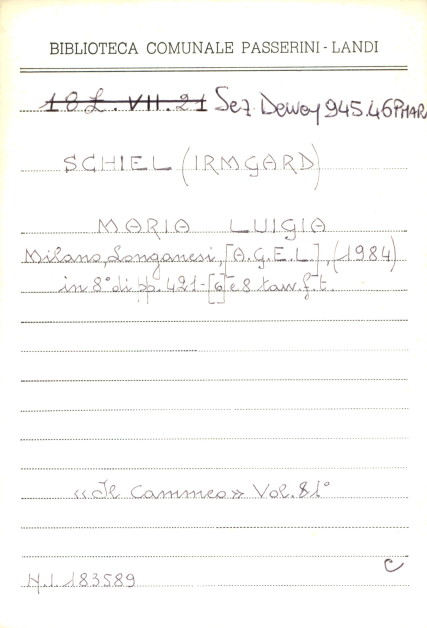 BIBLIOTECA COMUNALE PASSERINI - LANDI
18 L. VII. 21 Sez Dewey 945.46 PMAR
SCHIEL (IRMGARD)
MARIA LUIGIA
Milano, Longanesi, [A.G.E.L.], (1984)
in 8° di pp. 421-[6] e 8 tav. f. t.
«Il Cammeo» Vol. 81°
C
N.I. 183589